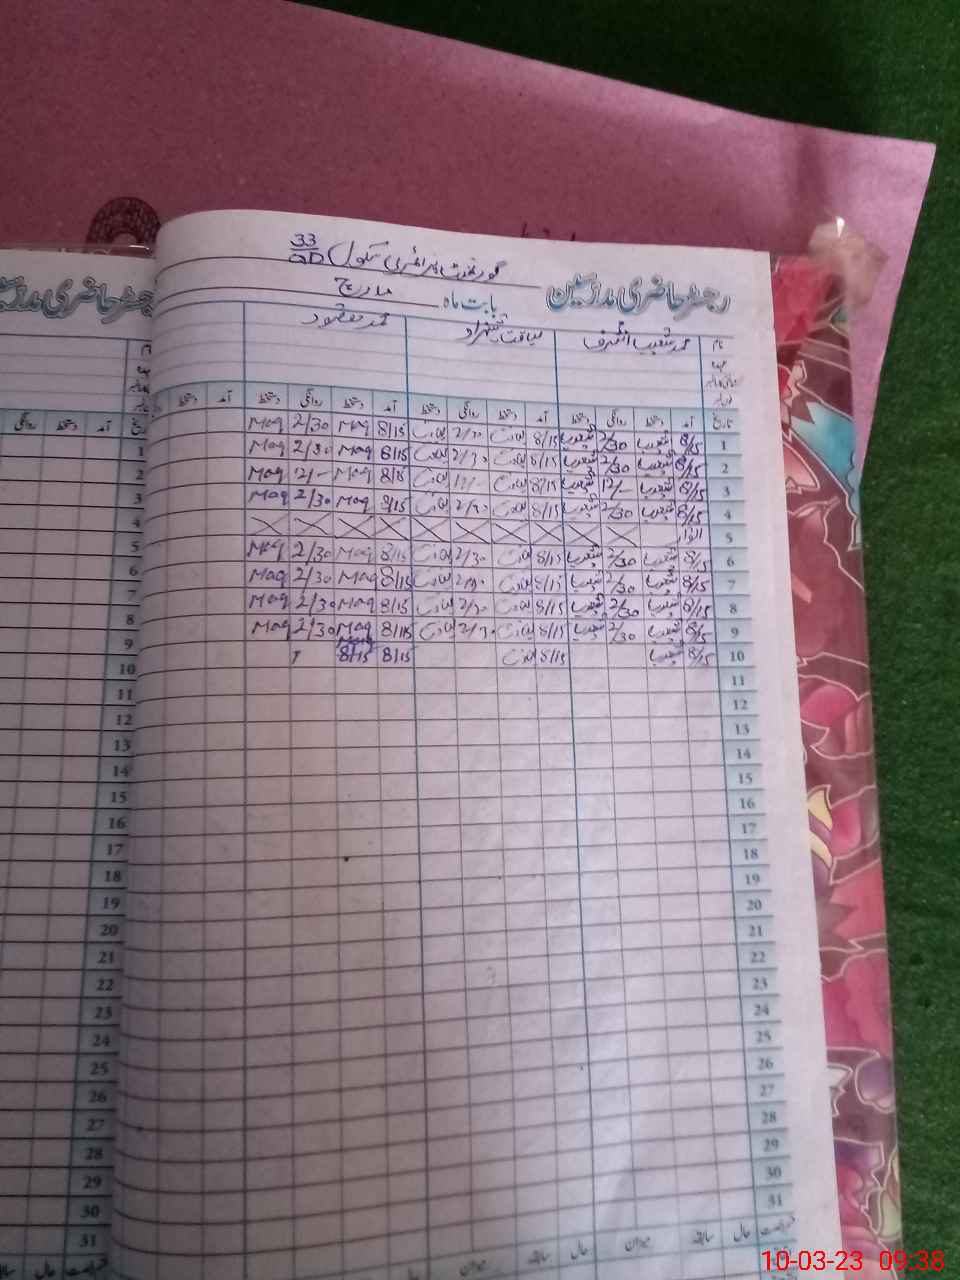 رجسٹر حاضری مدرسین گورنمنٹ پرائمری سکول 33
بابت ماہ مارچ
نام محمد شعیب اشرف لیاقت شہزاد محمد مقصود
عہدہ
تاریخ آمد دستخط روانگی دستخط آمد دستخط روانگی دستخط آمد دستخط روانگی دستخط
1 8/15 شعیب 2/30 شعیب 8/15 لیاقت 2/30 لیاقت 8/15 Maq 2/30 Maq
2 8/15 شعیب 2/30 شعیب 8/15 لیاقت 2/30 لیاقت 8/15 Maq 2/30 Maq
3 8/15 شعیب 12/- شعیب 8/15 لیاقت 12/- لیاقت 8/15 Maq 12/- Maq
4 8/15 شعیب 2/30 شعیب 8/15 لیاقت 2/30 لیاقت 8/15 Maq 2/30 Maq
5 اتوار
6 8/15 شعیب 2/30 شعیب 8/15 لیاقت 2/30 لیاقت 8/15 Maq 2/30 Maq
7 8/15 شعیب 2/30 شعیب 8/15 لیاقت 2/30 لیاقت 8/15 Maq 2/30 Maq
8 8/15 شعیب 2/30 شعیب 8/15 لیاقت 2/30 لیاقت 8/15 Maq 2/30 Maq
9 8/15 شعیب 2/30 شعیب 8/15 لیاقت 2/30 لیاقت 8/15 Maq 2/30 Maq
10 8/15 شعیب 8/15 لیاقت 8/15 8/15
11
12
13
14
15
16
17
18
19
20
21
22
23
24
25
26
27
28
29
30
31
رخصت حال سابقہ میزان حال سابقہ میزان حال
رجسٹر حاضری مدرسین
نام
تاریخ آمد دستخط روانگی
1
2
3
4
5
6
7
8
9
10
11
12
13
14
15
16
17
18
19
20
21
22
23
24
25
26
27
28
29
30
31
رخصت حال سابقہ
10-03-23 09:38